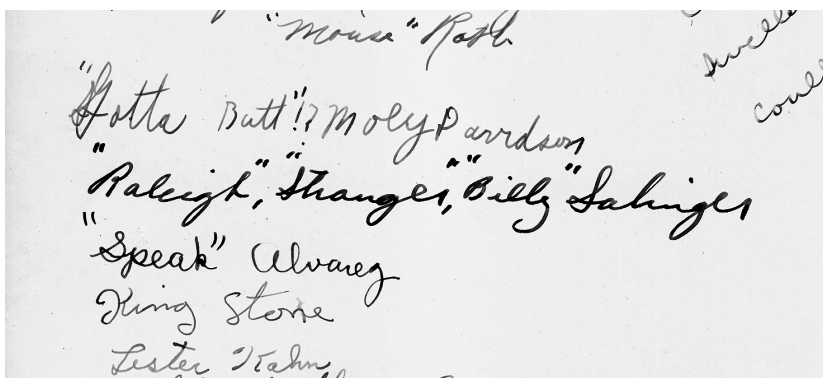 "Mouse" Roth
swell
coul
"Gotta Butt"!? Moly Davidson
"Raleigh", "Stranger", "Billy" Salinger
"Speak" Alvarez
King Stone
Lester Kahn